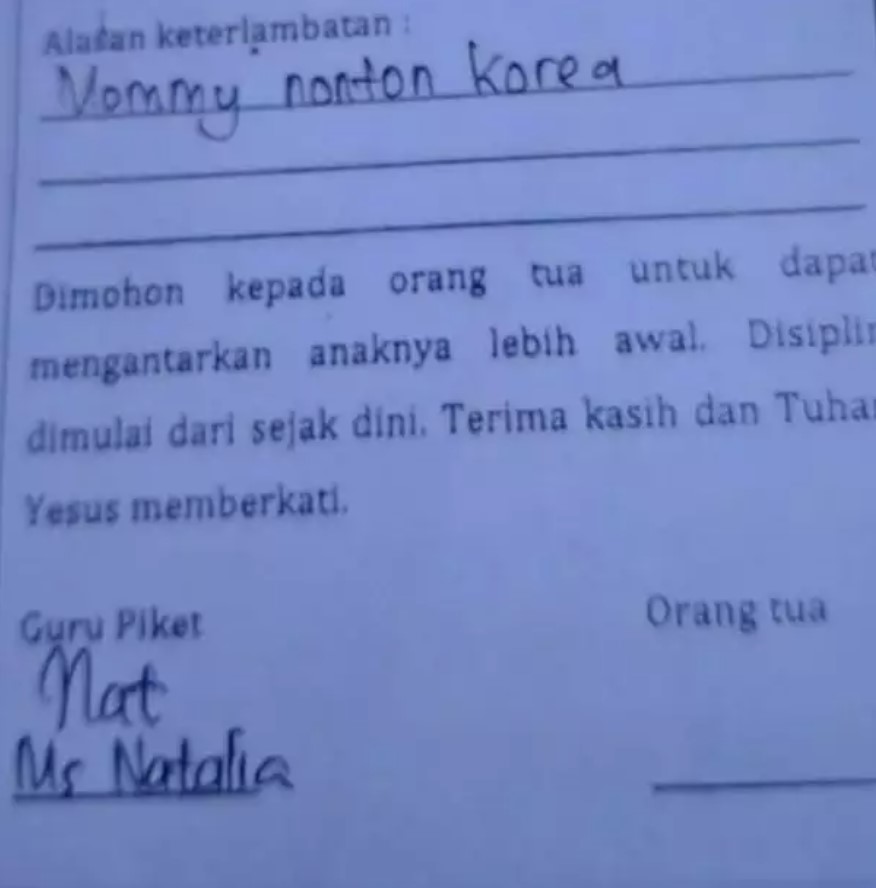 Alasan keterlambatan :
Mommy nonton Korea
Dimohon kepada orang tua untuk dapat
mengantarkan anaknya lebih awal. Disiplin
dimulai dari sejak dini. Terima kasih dan Tuhan
Yesus memberkati.
Guru Piket
Orang tua
Nat
Ms Natalia